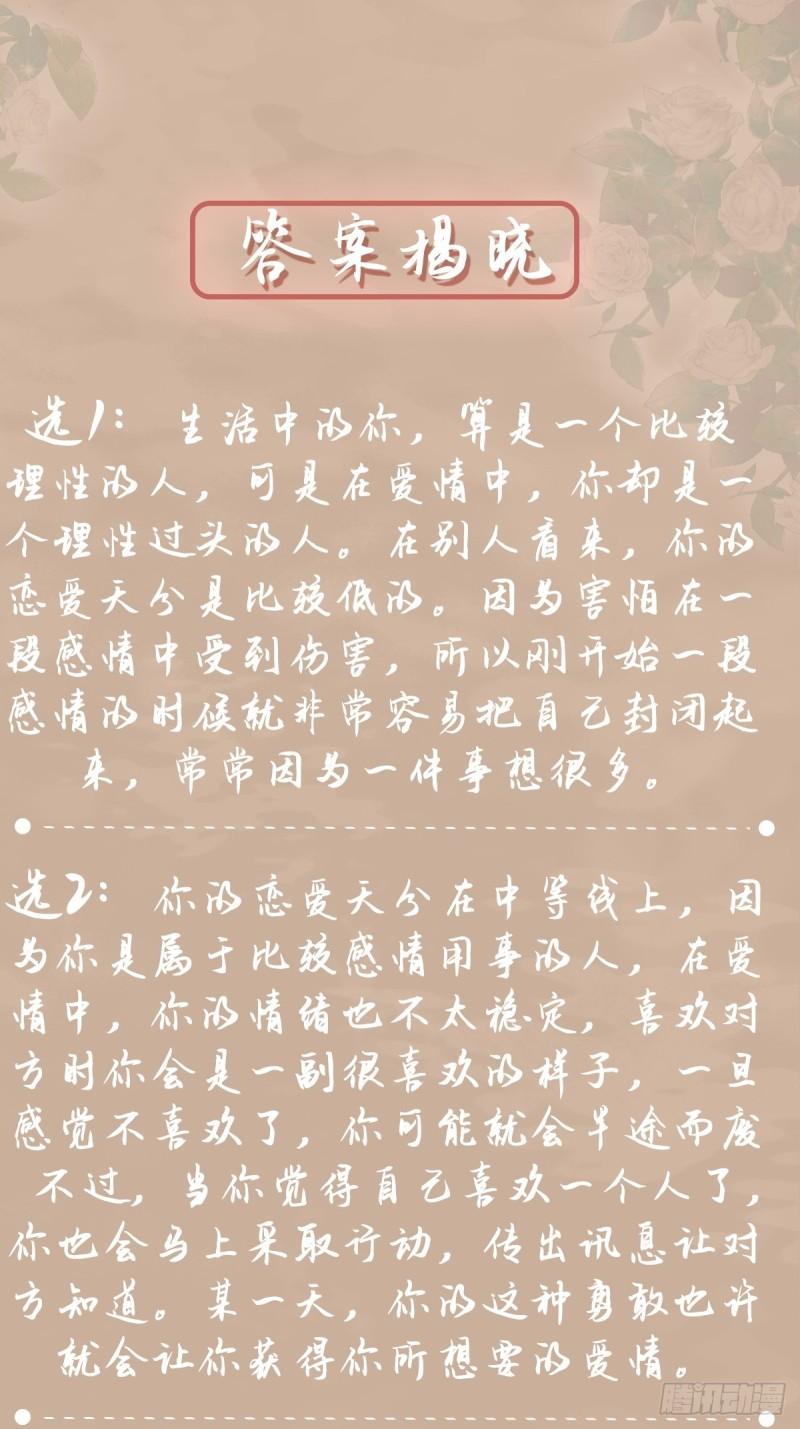 答案揭晓
选1：生活中的你，算是一个比较
理性的人，可是在爱情中，你却是一
个理性过头的人。在别人看来，你的
恋爱天分是比较低的。因为害怕在一
段感情中受到伤害，所以刚开始一段
感情的时候就非常容易把自己封闭起
来，常常因为一件事想很多。
选2：你的恋爱天分在中等线上，因
为你是属于比较感情用事的人，在爱
情中，你的情绪也不太稳定，喜欢对
方时你会是一副很喜欢的样子，一旦
感觉不喜欢了，你可能就会半途而废
不过，当你觉得自己喜欢一个人了，
你也会马上采取行动，传出讯息让对
方知道。某一天，你的这种勇敢也许
就会让你获得你所想要的爱情。
腾讯动漫